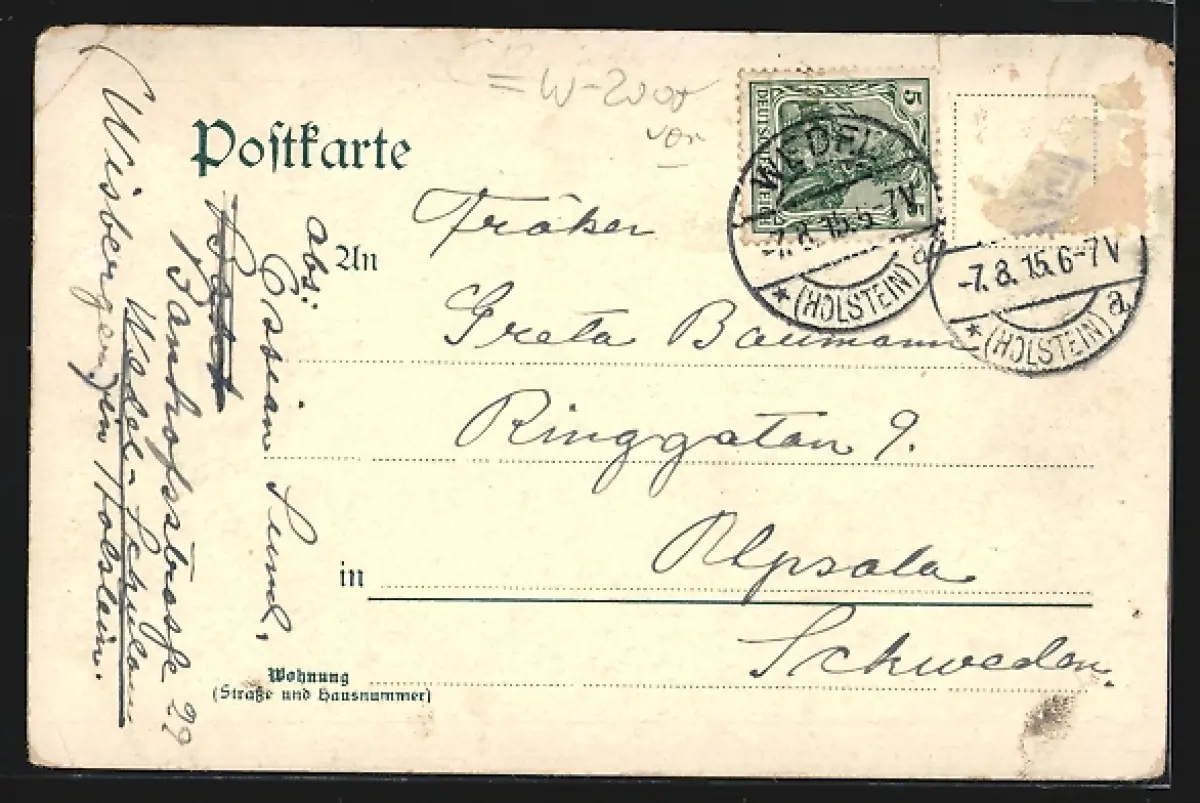 Postkarte
An
Fröken
Greta Baumann
Ringgatan 9.
Upsala
in
Schweden.
Wohnung
(Straße und Hausnummer)
abs:
Ossian Sund,
Bahnhofsstrasse 29
Wedel-Schulau
in Holstein.
5
DEUTSCHES REICH
5
WEDEL
-7.8.15.6-7V
* (HOLSTEIN) a
-7.8.15.6-7V
* (HOLSTEIN) a